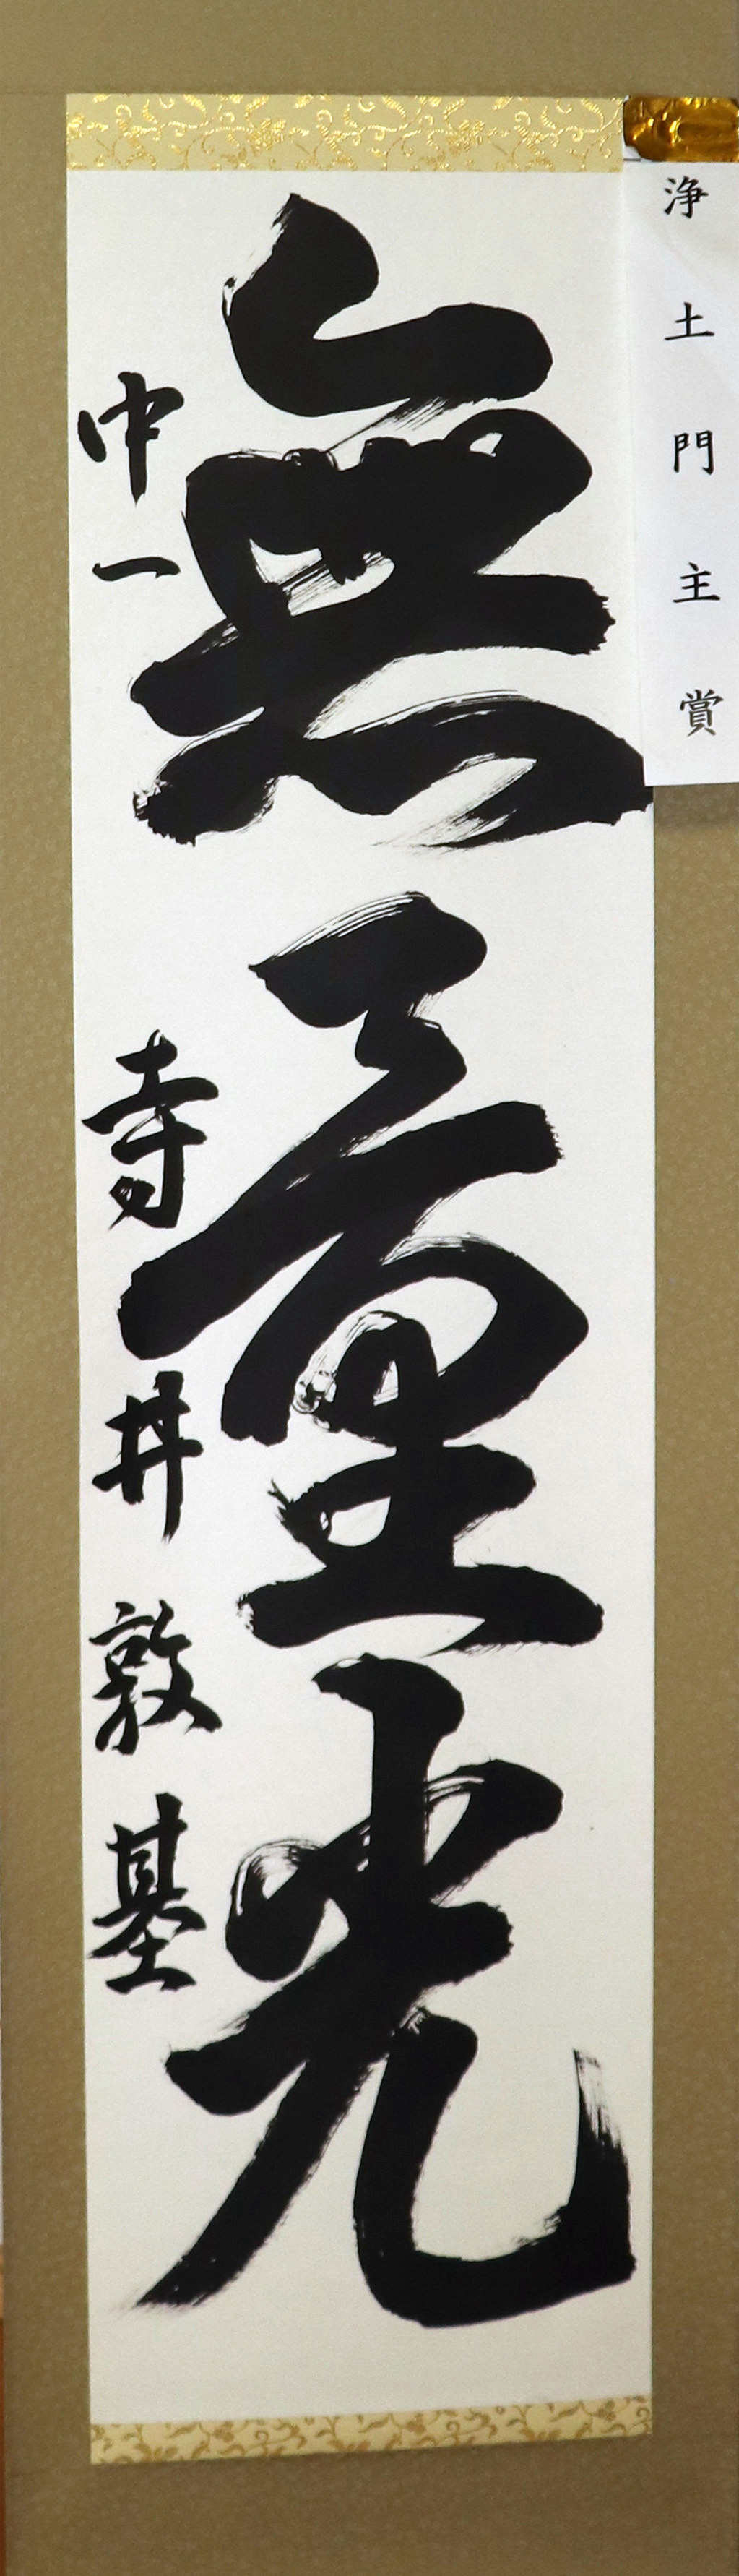 浄土門主賞
無量光
中一 寺井敦基